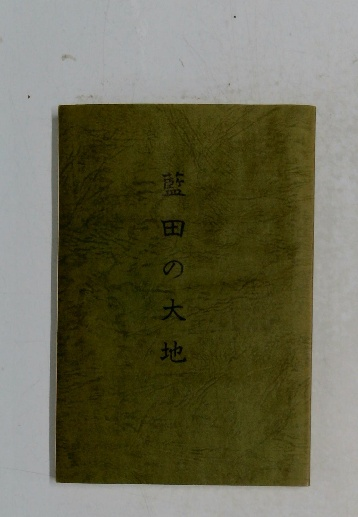 藍田の大地